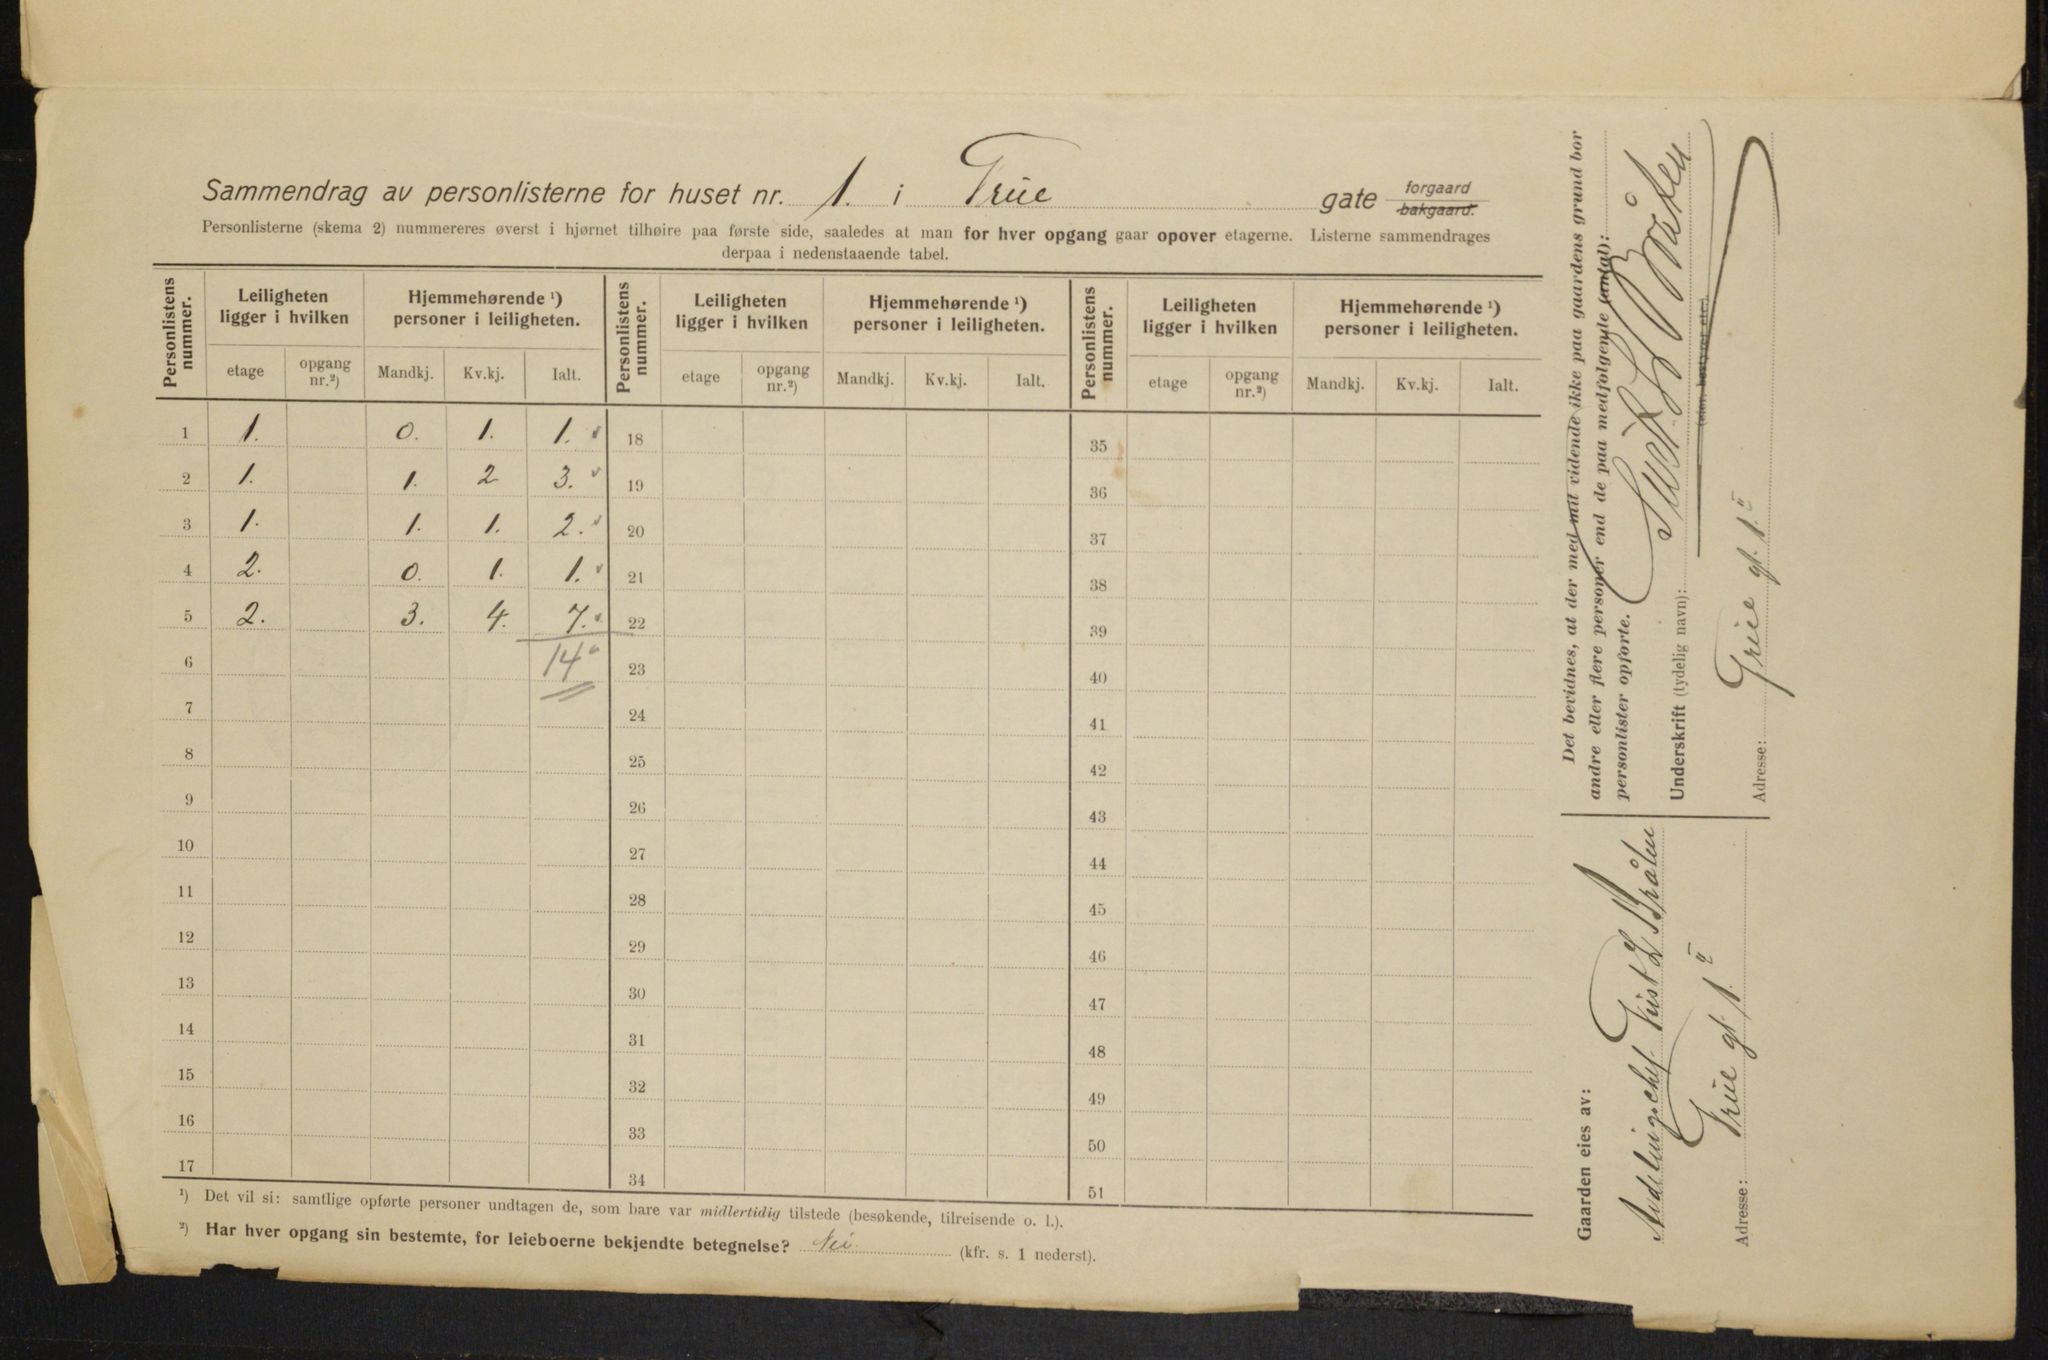 Sammendrag av personlisterne for huset nr. 1. i Trúe gate forgaard bakgaard.
Personlisterne (skema 2) nummereres øverst i hjørnet tilhøire paa første side, saaledes at man for hver opgang gaar opover etagerne. Listerne sammendrages
derpaa i nedenstaaende tabel.
Personlistens nummer. Leiligheten ligger i hvilken Hjemmehørende ¹) personer i leiligheten. Personlistens nummer. Leiligheten ligger i hvilken Hjemmehørende ¹) personer i leiligheten. Personlistens nummer. Leiligheten ligger i hvilken Hjemmehørende ¹) personer i leiligheten.
etage opgang nr.²) Mandkj. Kv.kj. Ialt. etage opgang nr.²) Mandkj. Kv.kj. Ialt. etage opgang nr.²) Mandkj. Kv.kj. Ialt.
1 1. 0. 1. 1. 18 35
2 1. 1. 2 3. 19 36
3 1. 1. 1. 2. 20 37
4 2. 0. 1. 1. 21 38
5 2. 3. 4. 7. 22 39
6 14 23 40
7 24 41
8 25 42
9 26 43
10 27 44
11 28 45
12 29 46
13 30 47
14 31 48
15 32 49
16 33 50
17 34 51
¹) Det vil si: samtlige opførte personer undtagen de, som bare var midlertidig tilstede (besøkende, tilreisende o. l.).
²) Har hver opgang sin bestemte, for leieboerne bekjendte betegnelse? Nei (kfr. s. 1 nederst).
Det bevidnes, at der med mit vidende ikke paa gaardens grund bor
andre eller flere personer end de paa medfølgende (antal):
personlister opførte.
Underskrift (tydelig navn): Bråten
(eier, bestyrer etc.)
Adresse: Trúe gt. 1.
Gaarden eies av:
Avdelingschef Bråten
Adresse: Trúe gt. 1.